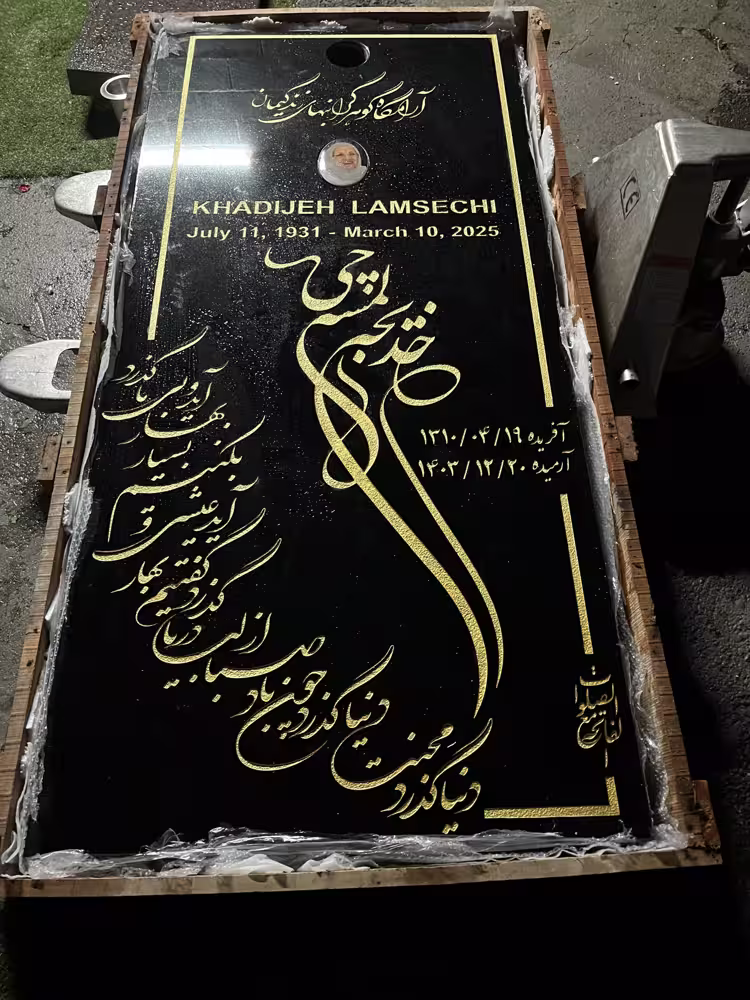 آرامگاه گوهر گرانبهای زندگیمان
KHADIJEH LAMSECHI
July 11, 1931 - March 10, 2025
خدیجه لمسه چی
آفریده ۱۳۱۰/۰۴/۱۹
آرمیده ۱۴۰۳/۱۲/۲۰
دنیا گذرد محنت دنیا گذرد
چون باد صبا از لب دریا گذرد
گفتیم بهار آید و عیشی بکنیم
بسیار بهار آید و بی ما گذرد
الفاتحة مع الصلوات